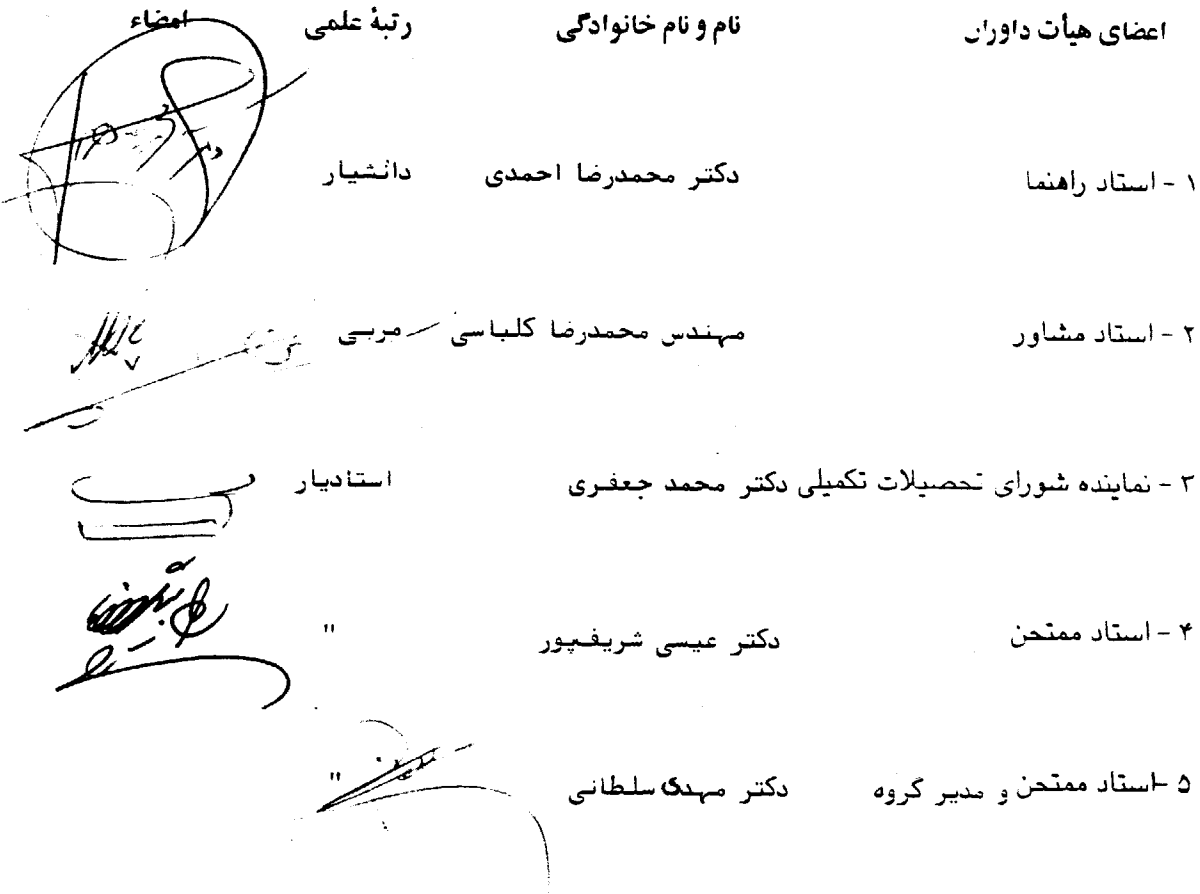 اعضای هیأت داوران نام و نام خانوادگی رتبهٔ علمی امضاء
۱ - استاد راهنما دکتر محمدرضا احمدی دانشیار
۲ - استاد مشاور مهندس محمدرضا کلباسی مربی
۳ - نماینده شورای تحصیلات تکمیلی دکتر محمد جعفری استادیار
۴ - استاد ممتحن دکتر عیسی شریف‌پور "
۵ - استاد ممتحن و مدیر گروه دکتر مهدی سلطانی "